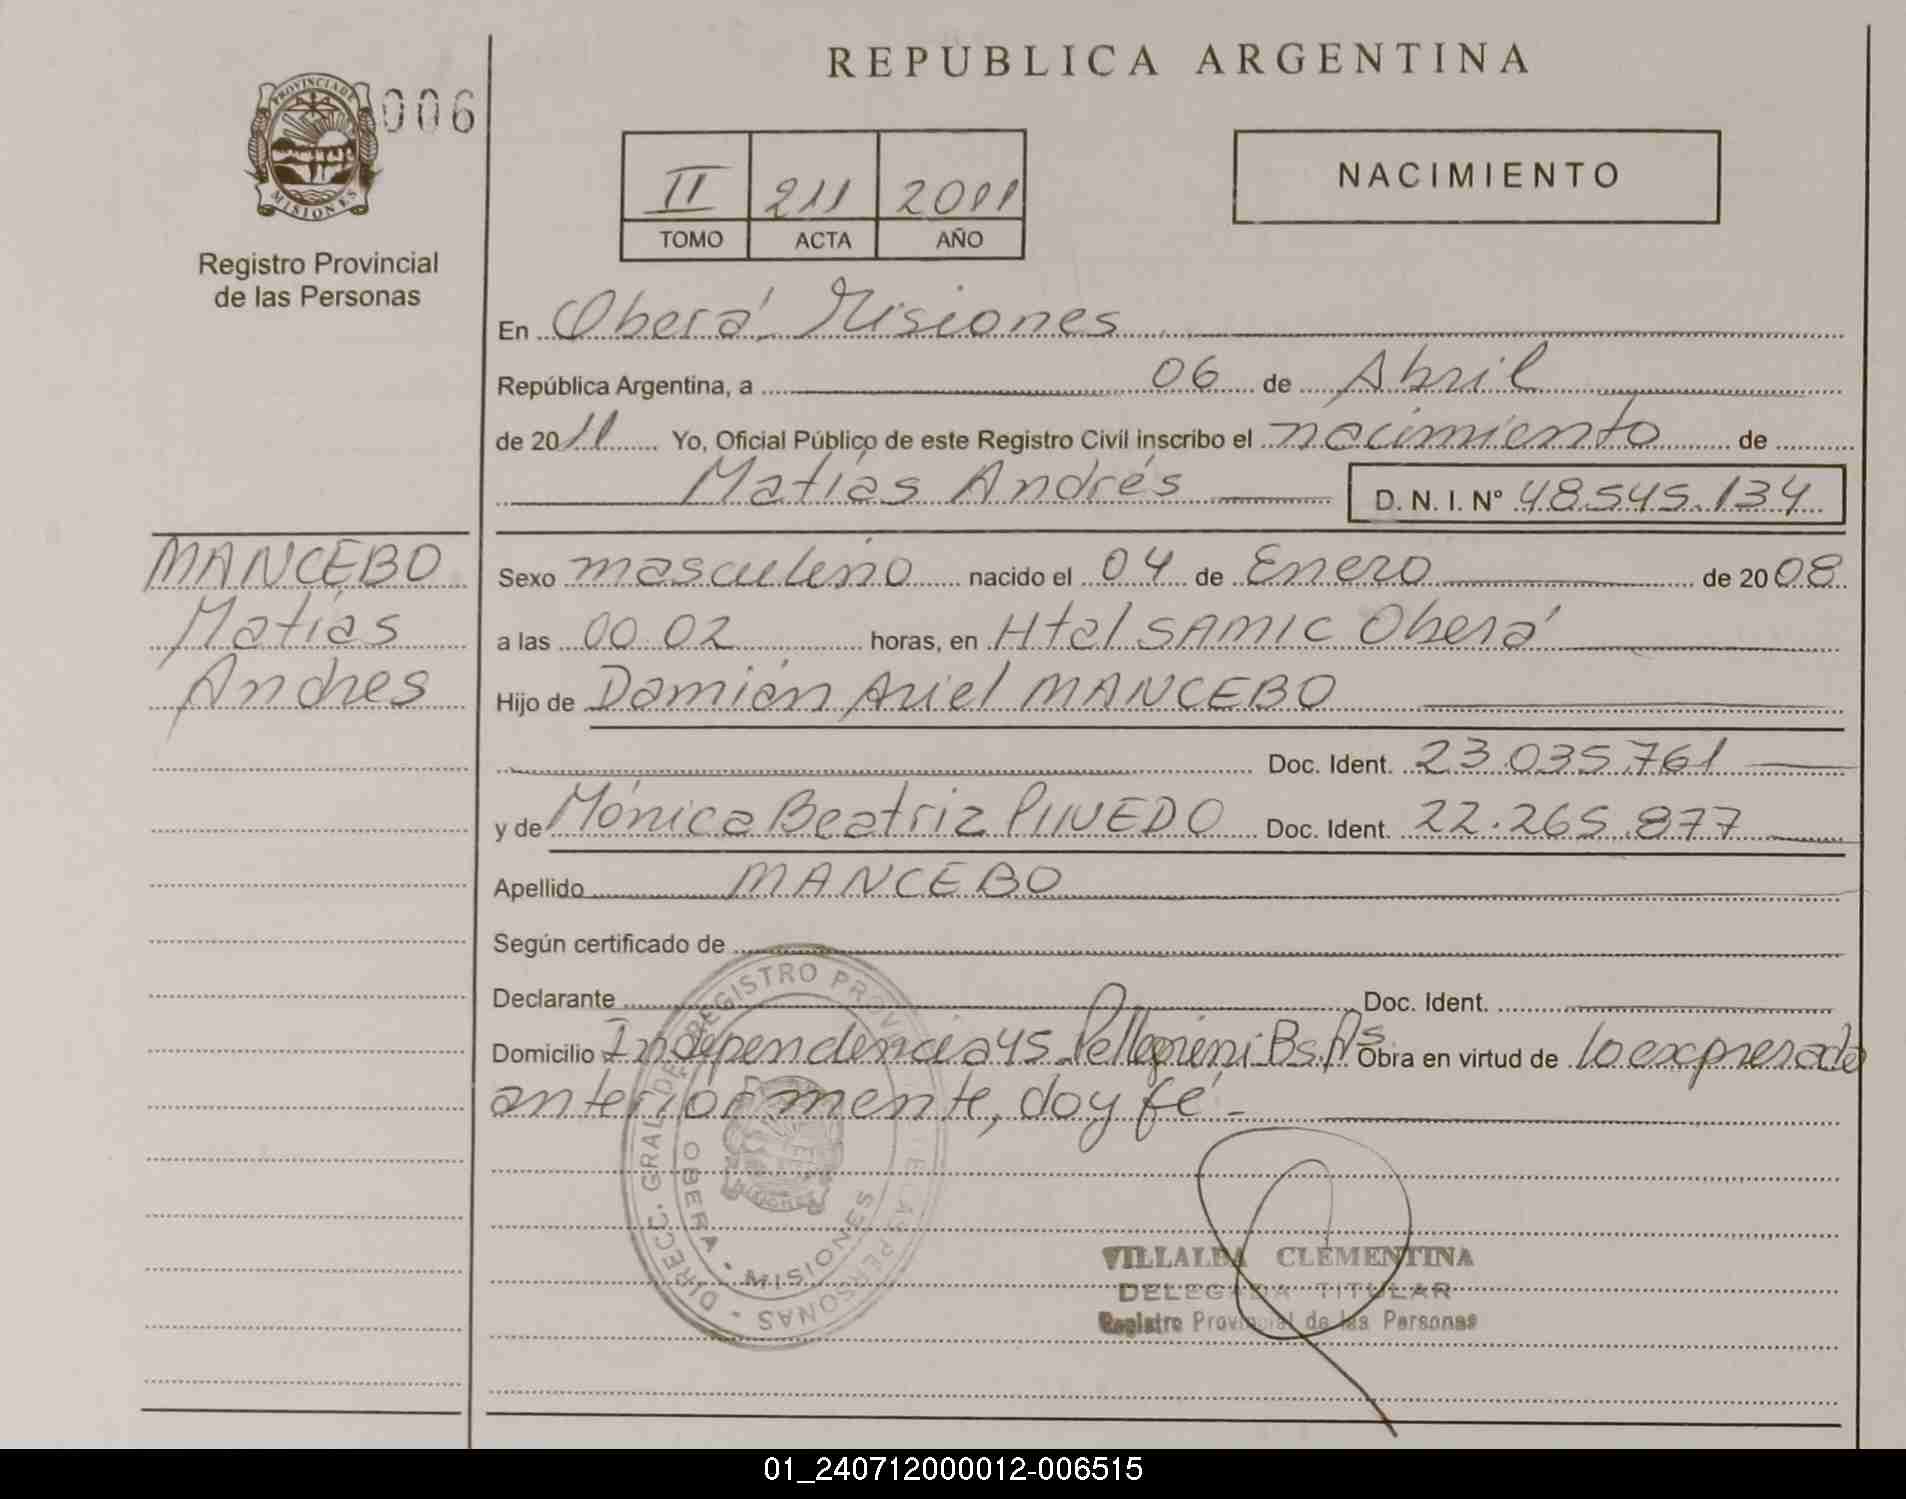 REPUBLICA ARGENTINA
PROVINCIA DE
MISIONES
006
Registro Provincial
de las Personas
II 211 2011
TOMO ACTA AÑO
NACIMIENTO
En Oberá, Misiones
República Argentina, a 06 de Abril
de 2011 Yo, Oficial Público de este Registro Civil inscribo el nacimiento de
Matías Andrés D. N. I. Nº 48.545.134
MANCEBO
Matías
Andres
Sexo masculino nacido el 04 de Enero de 2008
a las 00 02 horas, en Htal SAMIC Oberá
Hijo de Damián Ariel MANCEBO
Doc. Ident. 23.035.761
y de Mónica Beatriz PINEDO Doc. Ident. 22.265.877
Apellido MANCEBO
Según certificado de
Declarante Doc. Ident.
Domicilio Independencia 45 Pellegrini Bs. As Obra en virtud de lo expresado
anteriormente, doy fé -
DIRECC. GRAL. DE REGISTRO PROV. DE LAS PERSONAS
OBERA - MISIONES
VILLALBA CLEMENTINA
DELEGADA TITULAR
Registro Provincial de las Personas
01_240712000012-006515